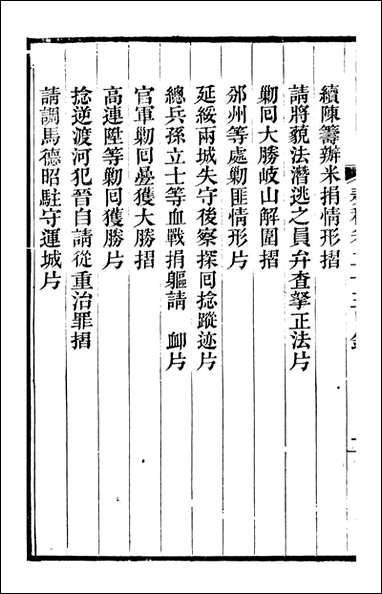 續陳籌辦米捐情形摺
請將藐法潛逃之員弁查拏正法片
勦囘大勝岐山解圍摺
邠州等處勦匪情形片
延綏兩城失守後察探囘捻蹤迹片
總兵孫立士等血戰捐軀請 卹片
官軍勦囘疊獲大勝摺
高連陞等勦囘獲勝片
捻逆渡河犯晉自請從重治罪摺
請調馬德昭駐守運城片